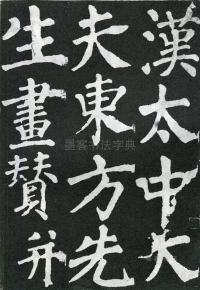 漢太中大
夫東方先
生畫賛并
墨客书法字典